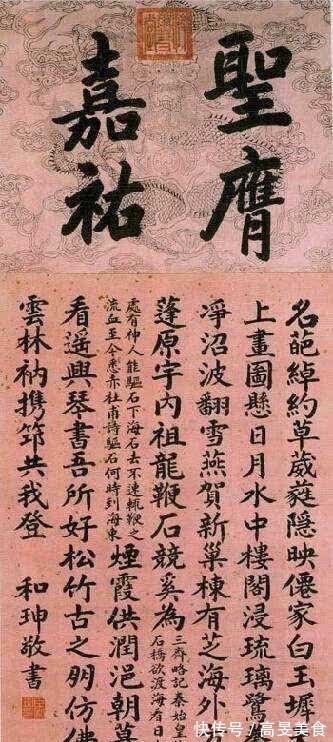 聖膺
嘉祐
名葩綽約草葳蕤隱映僊家白玉墀
上畫圖懸日月水中樓閣浸琉璃鷺
淨沼波翻雪燕賀新巢棟有芝海外
蓬原宇內祖龍鞭石競奚為
三齊略記秦始皇
石橋欲渡海有日
處有神人能驅石下海石去不速輒鞭之
流血至今悉赤杜甫詩驅石何時到海東
煙霞供潤浥朝暮
看遙興琴書吾所好松竹古之朋仿佛
雲林衲携筇共我登 和珅敬書
快传号/高旻美食